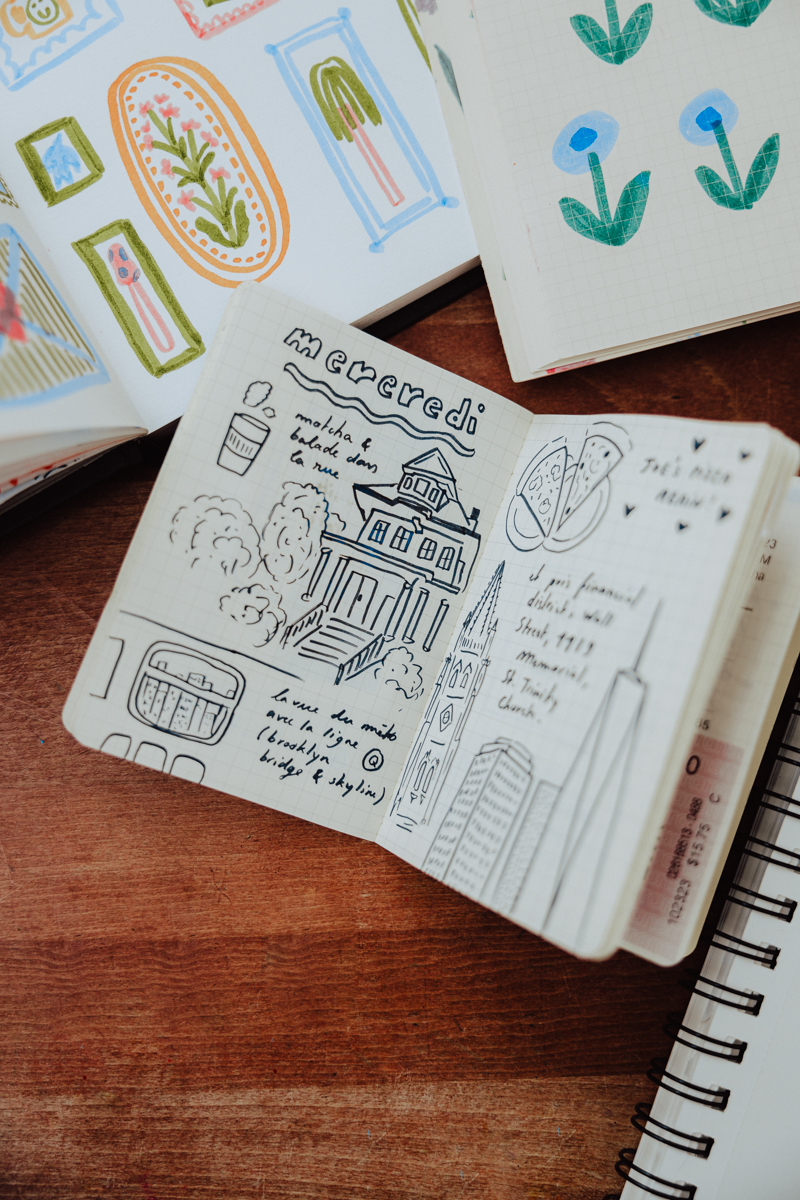 mercredi
matcha &
balade dans
la rue
la vue du métro
avec la ligne Q
(brooklyn
bridge & skyline)
JOE'S PIZZA
AGAIN!
et puis financial
district: Wall
Street, 9/11
Memorial,
St Trinity
Church.
0
102323 $15.75 C